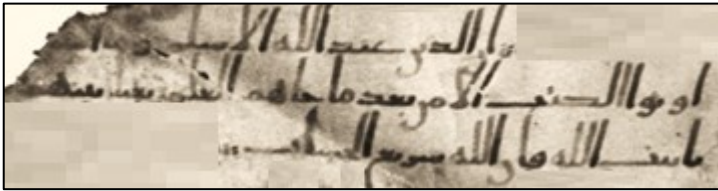 ان الدين عند الله الاسلم وما
اوتوا الكتب الا من بعد ما جاهم العلم بغيا بينهم
بايت الله فان الله سريع الحساب